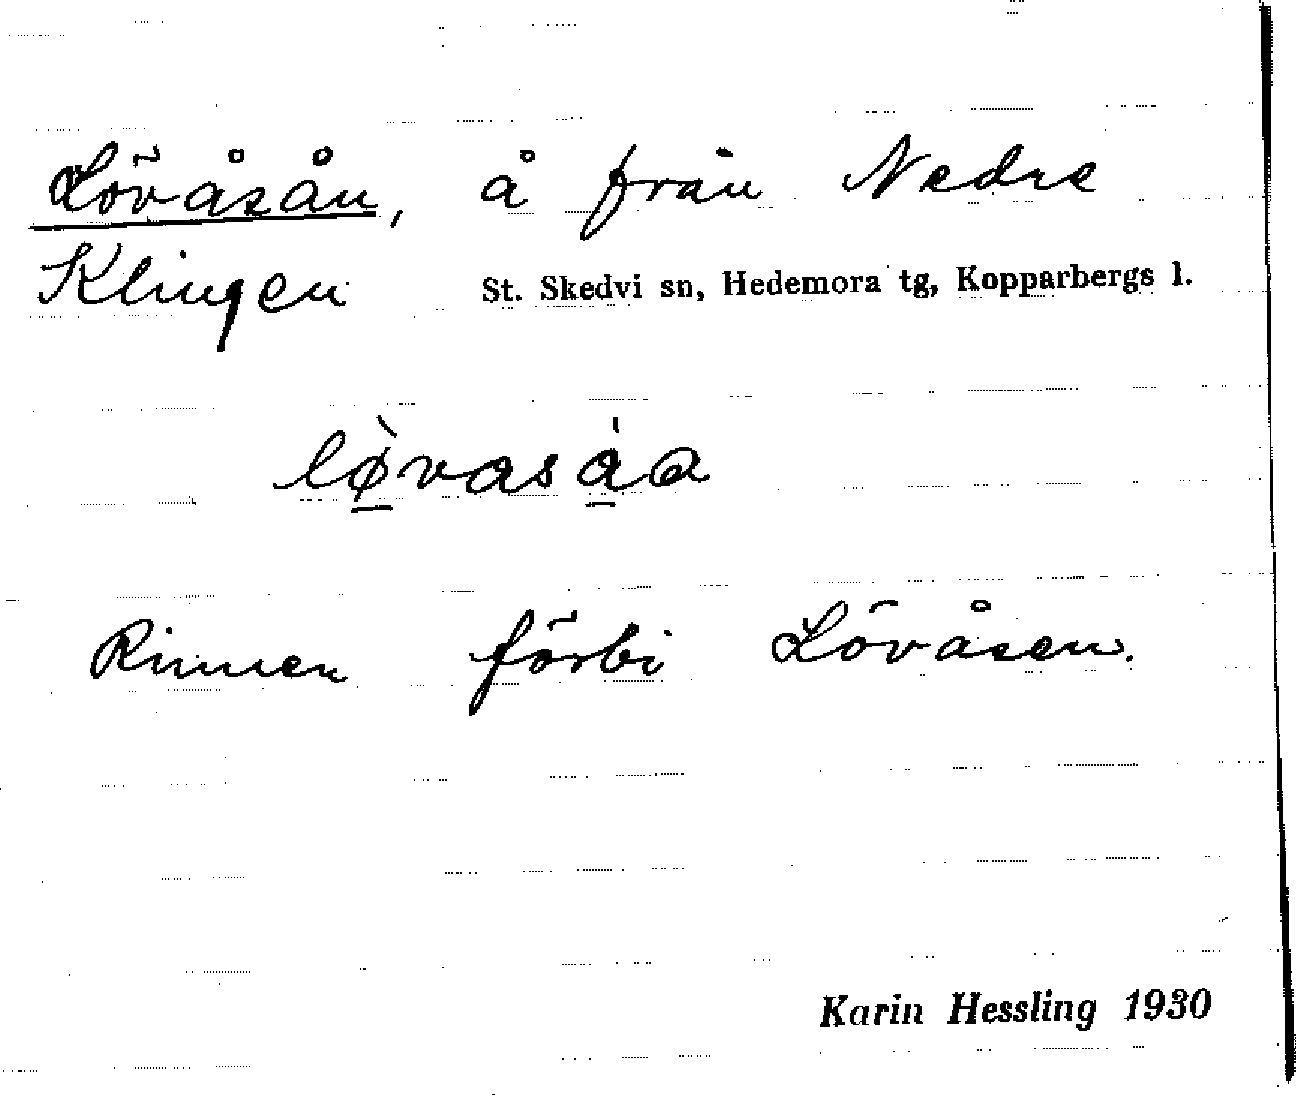 Lövåsån, å från Nedre
Klingen St. Skedvi sn, Hedemora tg, Kopparbergs l.
lø̀vasåa
Rinner förbi Lövåsen.
Karin Hessling 1930